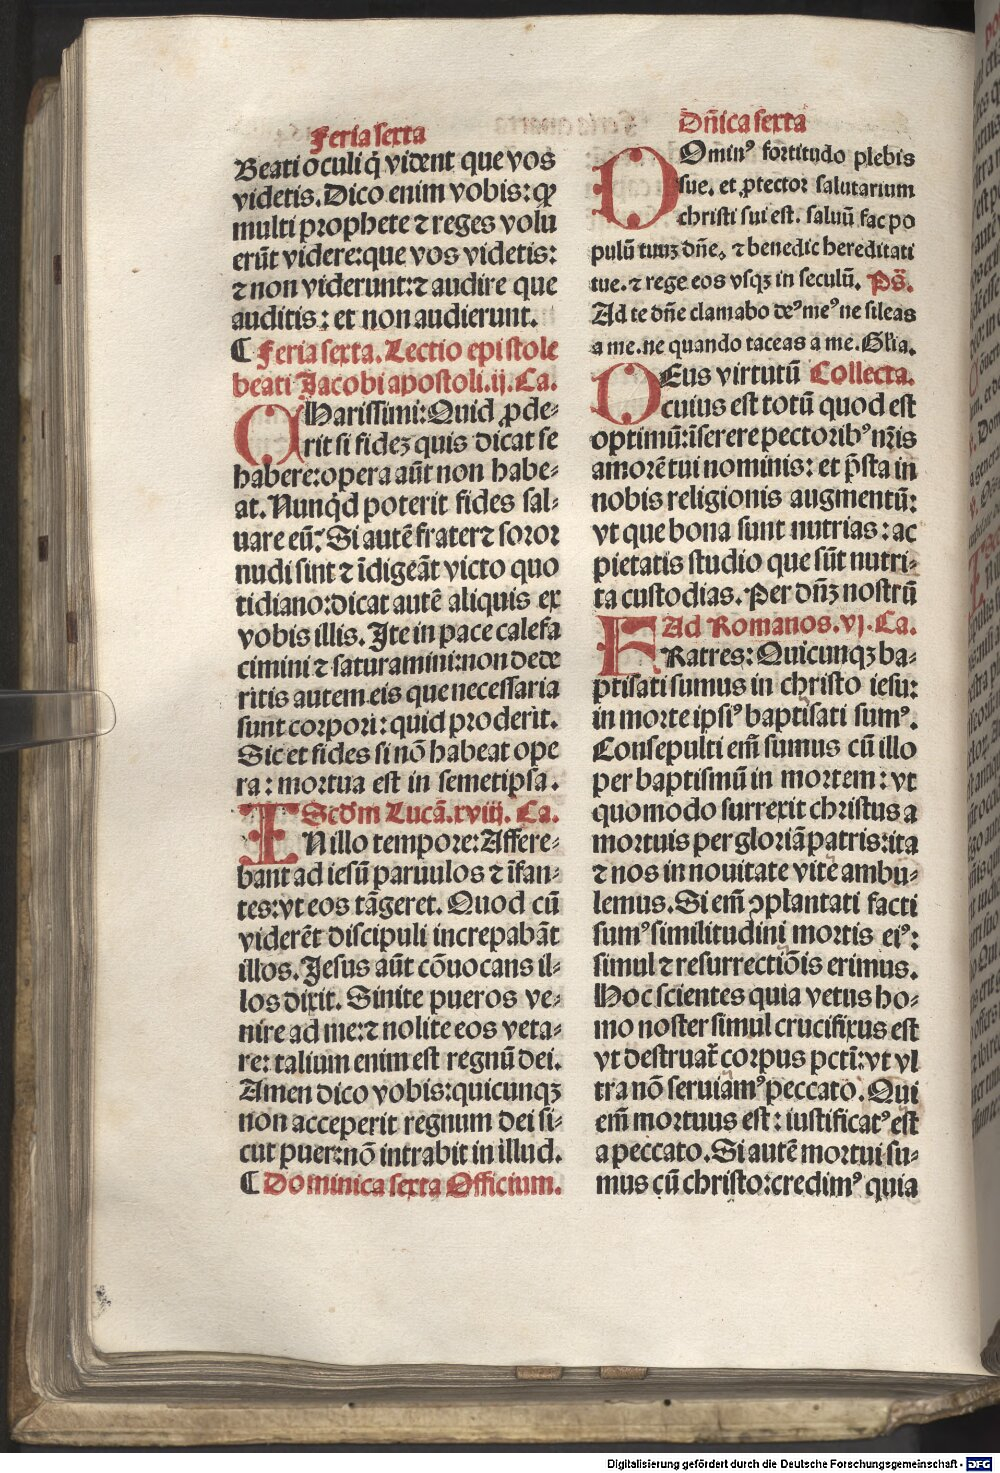 Feria sexta
Beati oculi q̇ vident que vos
videtis. Dico enim vobis: ꝙ
multi prophete ⁊ reges volu
erūt videre: que vos videtis:
⁊ non viderunt: ⁊ audire que
auditis: et non audierunt.
⁋ Feria sexta. Lectio epistole
beati Jacobi apostoli. ij. Ca.
CHarissimi: Quid ꝓde⸗
rit si fideꝫ quis dicat se
habere: opera aūt non habe⸗
at. Nunq̇d poterit fides sal⸗
uare eū? Si autē frater ⁊ soror
nudi sint ⁊ īdigeāt victo quo
tidiano: dicat autē aliquis ex
vobis illis. Ite in pace calefa
cimini ⁊ saturamini: non dede
ritis autem eis que necessaria
sunt corpori: quid proderit.
Sic et fides si nō habeat ope
ra: mortua est in semetipsa.
Scd̄m Lucā. xviij. Ca.
IN illo tempore: Affere⸗
bant ad iesū paruulos ⁊ īfan⸗
tes: vt eos tāgeret. Quod cū
viderēt discipuli increpabāt
illos. Jesus aūt cōuocans il⸗
los dixit. Sinite pueros ve⸗
nire ad me: ⁊ nolite eos veta⸗
re: talium enim est regnū dei.
Amen dico vobis: quicunqꝫ
non acceperit regnum dei si⸗
cut puer: nō intrabit in illud.
⁋ Dominica sexta Officium.
Dn̄ica sexta
DOminꝰ fortitudo plebis
sue. et ꝓtector salutarium
christi sui est. saluū fac po
pulū tuuꝫ dn̄e, ⁊ benedic hereditati
tue. ⁊ rege eos vsqꝫ in seculū. Ps̄.
Ad te dn̄e clamabo deꝰ meꝰ ne sileas
a me. ne quando taceas a me. Gl̄ia.
DEus virtutū Collecta.
cuius est totū quod est
optimū: īsere pectoribꝰ nr̄is
amorē tui nominis: et p̄sta in
nobis religionis augmentū:
vt que bona sunt nutrias: ac
pietatis studio que sūt nutri⸗
ta custodias. Per dn̄ꝫ nostrū
Ad Romanos. vj. Ca.
FRatres: Quicunqꝫ ba⸗
ptisati sumus in christo iesu:
in morte ipsiꝰ baptisati sumꝰ.
Consepulti em̄ sumus cū illo
per baptismū in mortem: vt
quomodo surrexit christus a
mortuis per gloriā patris: ita
⁊ nos in nouitate vite ambu⸗
lemus. Si em̄ ꝯplantati facti
sumꝰ similitudini mortis eiꝰ:
simul ⁊ resurrectiōis erimus.
Hoc scientes quia vetus ho⸗
mo noster simul crucifixus est
vt destruat̄ corpus pctī: vt vl
tra nō seruiamꝰ peccato. Qui
em̄ mortuus est: iustificatꝰ est
a peccato. Si autē mortui su⸗
mus cū christo: credimꝰ quia
Digitalisierung gefördert durch die Deutsche Forschungsgemeinschaft - DFG